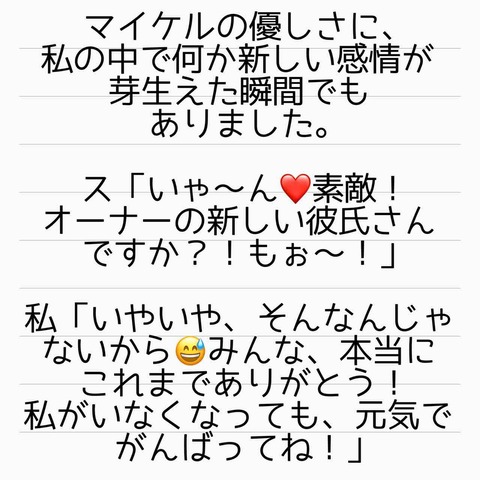 マイケルの優しさに、
私の中で何か新しい感情が
芽生えた瞬間でも
ありました。
ス「いゃ〜ん❤️素敵！
オーナーの新しい彼氏さん
ですか？！もぉ〜！」
私「いやいや、そんなんじゃ
ないから😅みんな、本当に
これまでありがとう！
私がいなくなっても、元気で
がんばってね！」